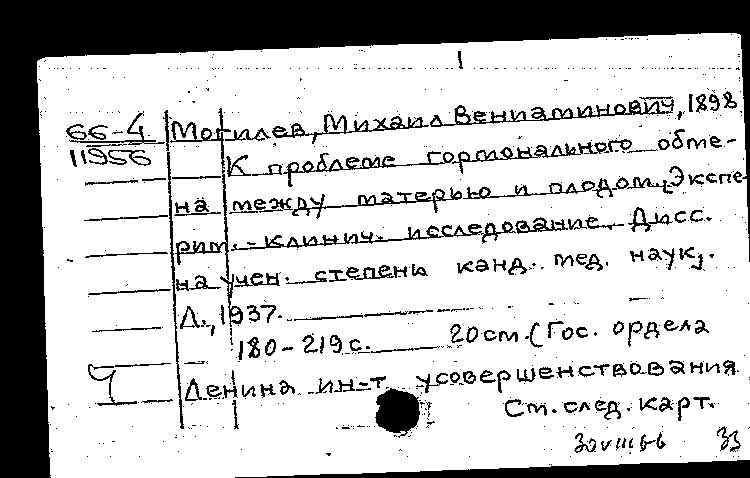 1
66-4 Могилев, Михаил Вениаминович, 1898
11956 К проблеме гормонального обме-
на между матерью и плодом. Экспе-
рим.-клинич. исследование. Дисс.
на учен. степень канд. мед. наук.
Л., 1937.
180-219с. 20см. (Гос. ордена
Ч Ленина ин-т усовершенствования
См. след. карт.
30VIII66 33